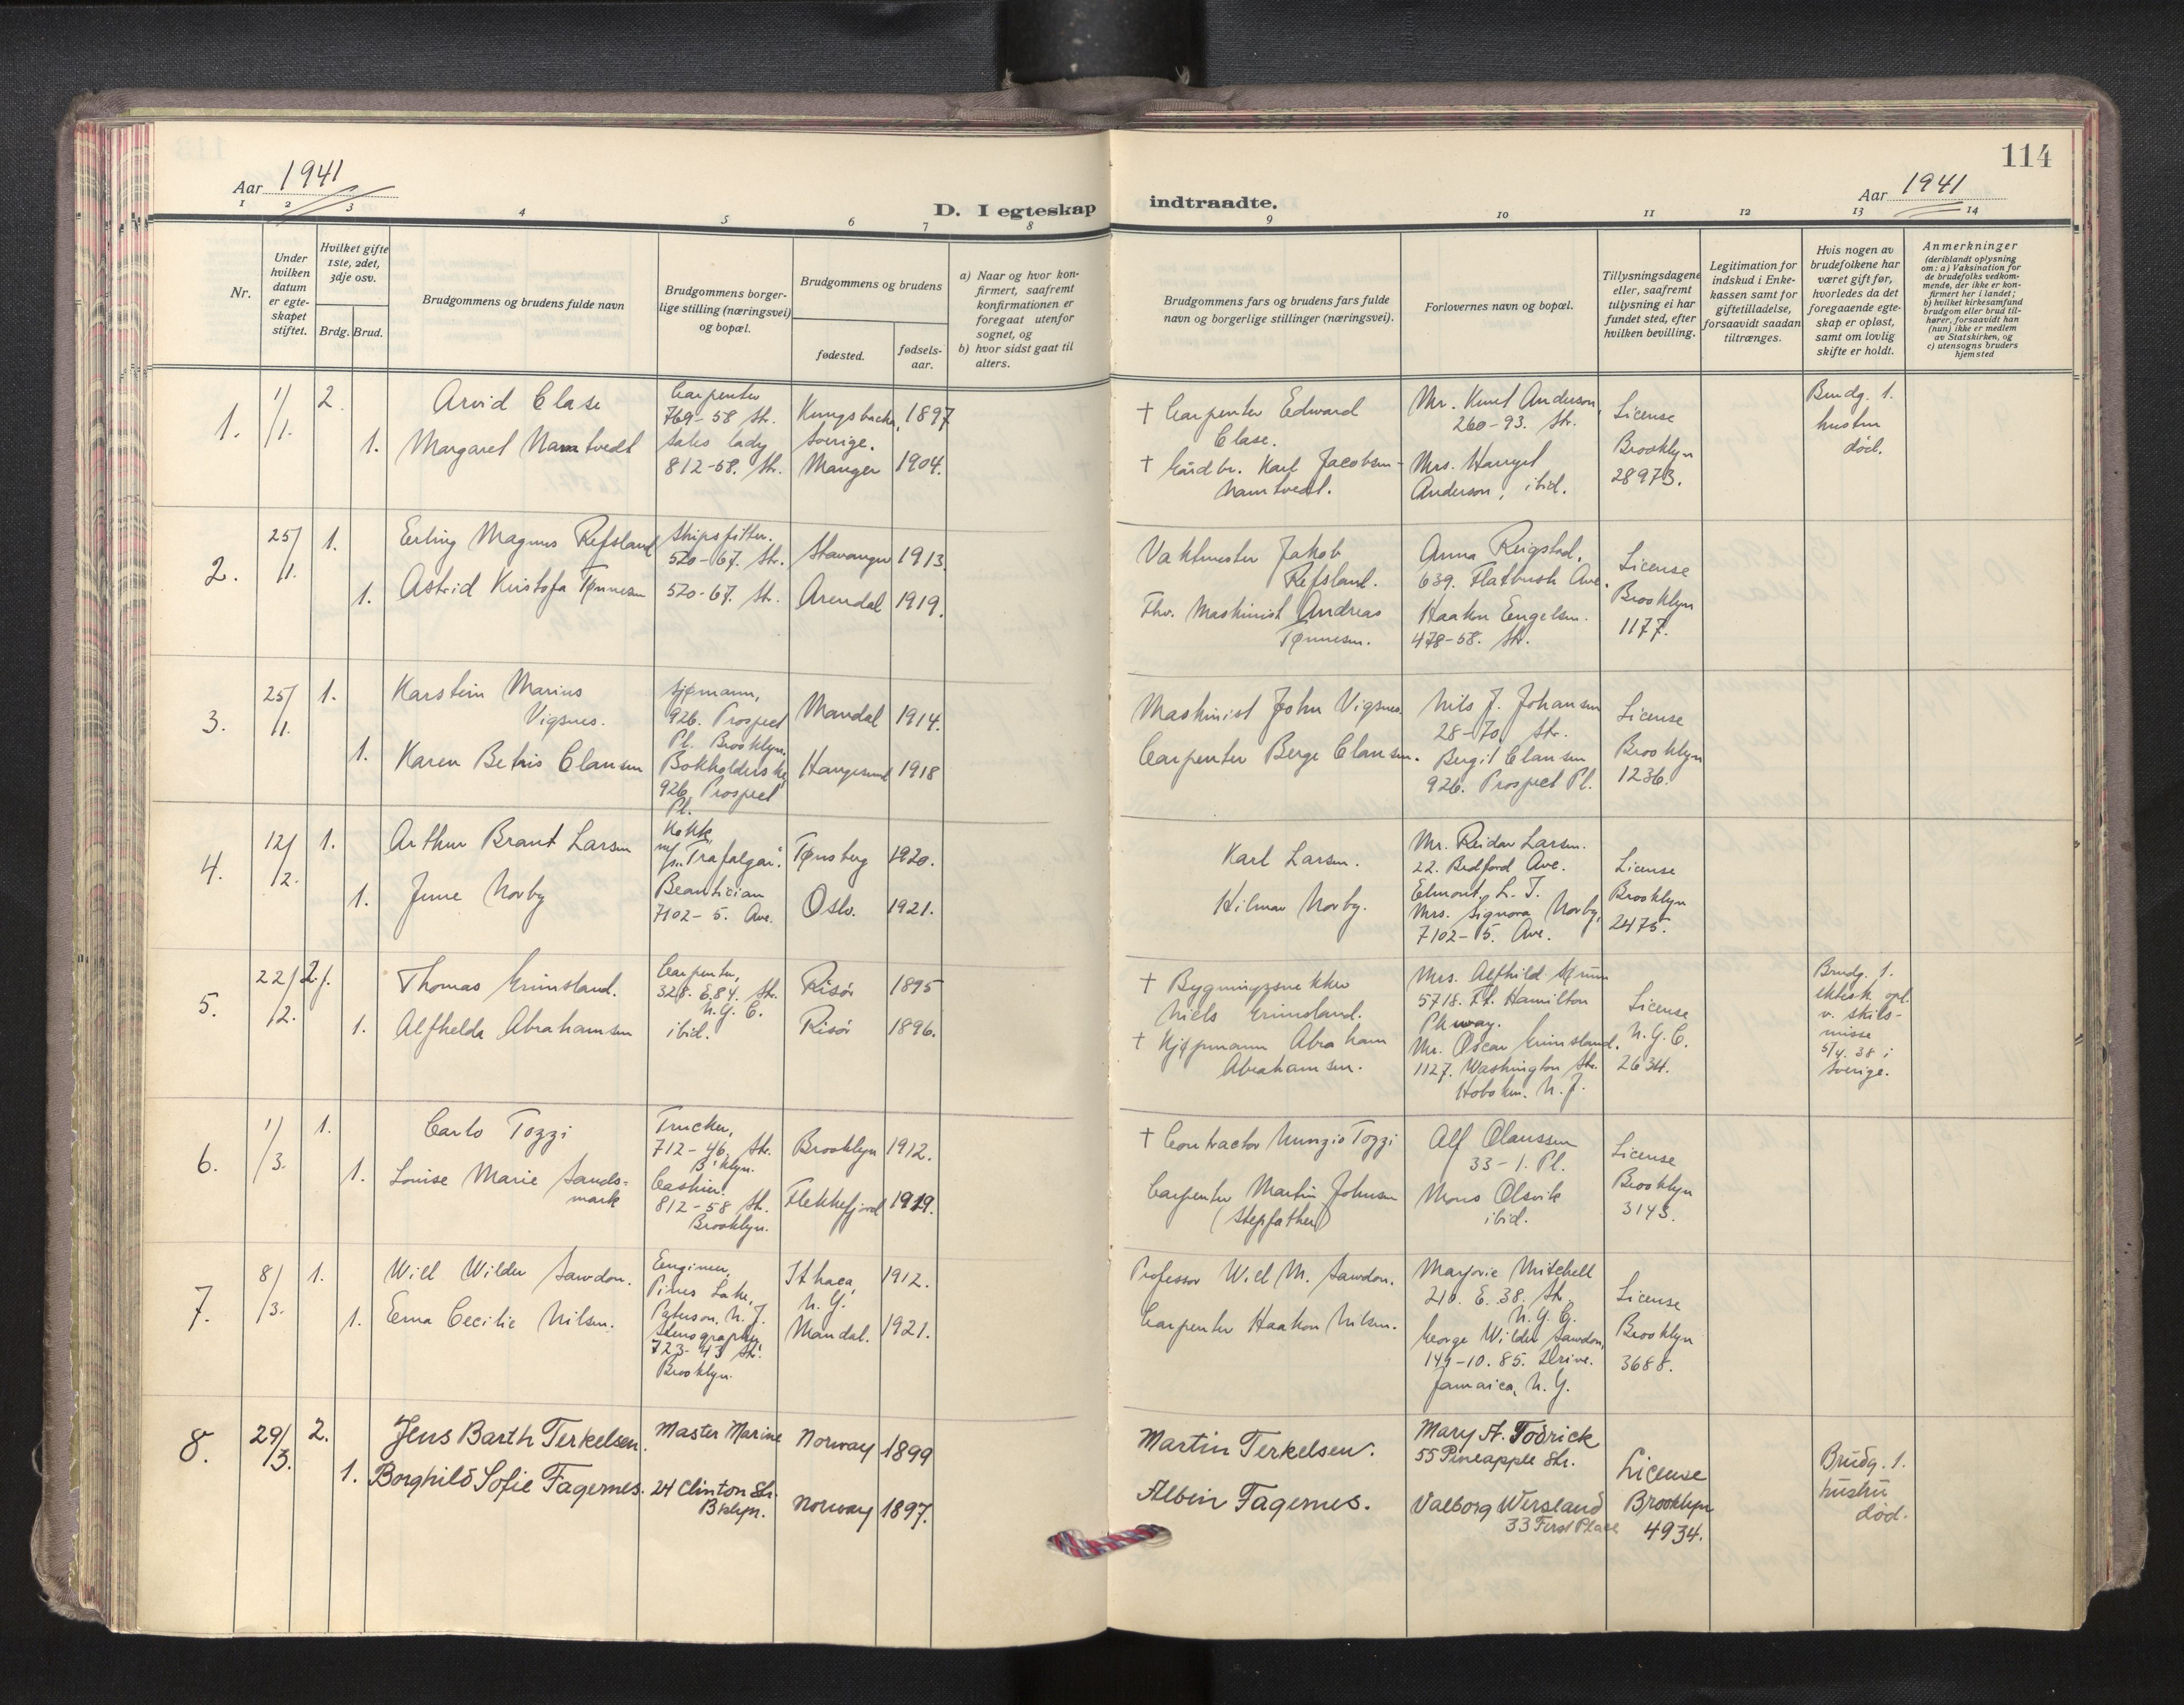 Aar 1941
D. I egteskap
1 2 3 4 5 6 7 8
Nr.
Under hvilken datum er egteskapet stiftet.
Hvilket gifte 1ste, 2det, 3dje osv.
Brdg. Brud.
Brudgommens og brudens fulde navn
Brudgommens borgerlige stilling (næringsvei) og bopæl.
Brudgommens og brudens
fødested.
fødselsaar.
a) Naar og hvor konfirmert, saafremt konfirmationen er foregaat utenfor sognet, og
b) hvor sidst gaat til alters.
indtraadte.
Aar 1941
114
9 10 11 12 13 14
Brudgommens fars og brudens fars fulde navn og borgerlige stillinger (næringsvei).
Forlovernes navn og bopæl.
Tillysningsdagene eller, saafremt tillysning ei har fundet sted, efter hvilken bevilling.
Legitimation for indskud i Enkekassen samt for giftetilladelse, forsaavidt saadan tiltrænges.
Hvis nogen av brudefolkene har været gift før, hvorledes da det foregaaende egteskap er opløst, samt om lovlig skifte er holdt.
Anmerkninger
(deriblandt oplysning om: a) Vaksination for de brudefolks vedkommende, der ikke er konfirmert her i landet; b) hvilket kirkesamfund brudgom eller brud tilhører, forsaavidt han (hun) ikke er medlem av Statskirken, og c) utensogns bruders hjemsted
1. 1/1. 2. Arvid Clase
Carpenter
769-58 Str.
Kungsbacka, Sverige. 1897
1. Margaret Namtvedt
Sales lady
812-58. Str.
Manger 1904.
† Carpenter Edward Clase.
† Gårdbr. Karl Jacobsen Namtvedt.
Mr. Knut Anderson,
260-93. Str.
Mrs. Harryet
Anderson, ibid.
License
Brooklyn
28973.
Brudg. 1.
hustru
død.
2. 25/1. 1. Erling Magnus Refsland
Shipsfitter.
520-67. Str.
Stavanger 1913.
1. Astrid Kristofa Tønnesen
520-67. Str.
Arendal 1919.
Vaktmester Jakob
Refsland.
Fhv. Maskinist Andreas
Tønnesen.
Anna Reigstad.
639. Flatbush Ave.
Haakon Engelsen.
478-58. Str.
License
Brooklyn
1177.
3. 25/1. 1. Karstein Marius
Vigsnes.
Sjømann,
926. Prospect
Pl. Brooklyn.
Mandal 1914.
1. Karen Betris Clausen
Bokholderske
926. Prospect
Pl.
Haugesund 1918
Maskinist John Vigsnes.
Carpenter Berge Clausen.
Nils J. Johansen
28-70. Str.
Bergit Clausen
926. Prospect Pl.
License
Brooklyn
1236.
4. 12/2. 1. Arthur Brant Larsen
Kokk,
m/s. "Trafalgar".
Tønsberg 1920.
1. June Norby
Beautician
7102-5. Ave.
Oslo. 1921.
Karl Larsen.
Hilmar Norby.
Mr. Reidar Larsen.
22. Bedford Ave.
Elmont, L. I.
Mrs. Signora Norby,
7102-5. Ave.
License
Brooklyn
2475.
5. 22/2. 2. Thomas Grimsland.
Carpenter,
328. E. 84. Str.
N.Y.C.
Risör 1895
1. Alfhelda Abrahamsen
ibid.
Risör 1896.
† Bygningssnekker
Niels Grimsland.
† Kjøpmann Abraham
Abrahamsen.
Mrs. Alfhild
5718. Ft. Hamilton
Pkway.
Mr. Oscar Grimsland.
1127. Washington Str.
Hoboken. N. J.
License
N.Y.C.
2634.
Brudg. 1.
ektesk. opl.
v. skils-
misse
5/4. 38 i
Sverige.
6. 1/3. 1. Carlo Tozzi
Trucker,
712-46. Str.
B'klyn.
Brooklyn 1912.
1. Louise Marie Sands-
mark
Cashier.
812-58 Str.
Brooklyn.
Flekkefjord 1919.
† Contractor Nunzio Tozzi
Carpenter Martin Johnsen
(Stepfather)
Alf Olaussen
33-1. Pl.
Mons Olsvik
ibid.
License
Brooklyn
3143.
7. 8/3. 1. Will Wilder Sawdon.
Engineer,
Pines Lake,
Paterson, N. J.
Ithaca, N.Y. 1912.
1. Erna Cecilie Nilsen.
Stenographer
723-43 Str.
Brooklyn.
Mandal. 1921.
Professor Will M. Sawdon.
Carpenter Haakon Nilsen.
Marjorie Mitchell
210. E. 38. Str.
N.Y.C.
George Wilder Sawdon,
144-10. 85. Drive.
Jamaica, N.Y.
License
Brooklyn
3688.
8. 29/3. 2. Jens Barth Terkelsen.
Master Marine
Norway 1899
1. Borghild Sofie Fagernes.
24 Clinton Str.
B'klyn.
Norway 1897.
Martin Terkelsen.
Albin Fagernes.
Mary A. Todrick
55 Pineapple Str.
Valborg Wersland
33 First Place
License
Brooklyn
4934.
Brudg. 1.
hustru
død.